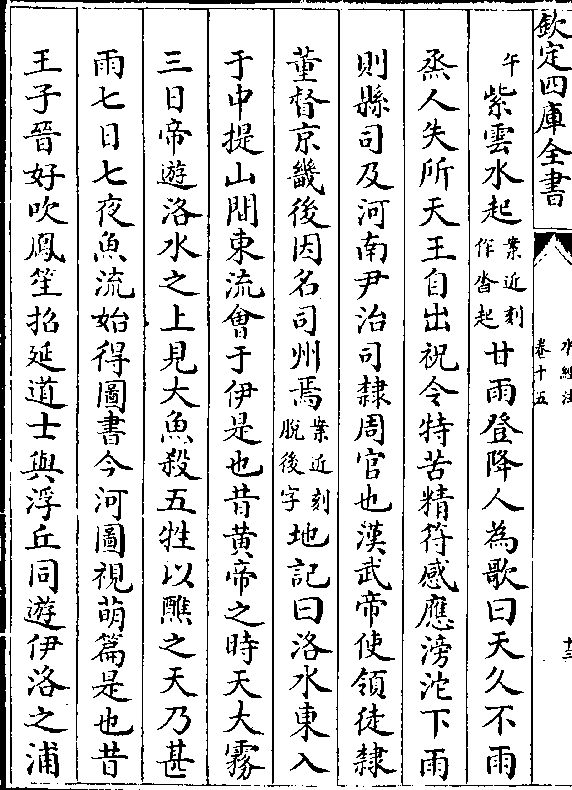 欽定四庫全書
水經注
卷十五
十三
午紫雲水起案近刻作沓起甘雨登降人為歌曰天久不雨
烝人失所天王自出祝令特苦精符感應滂沱下雨
則縣司及河南尹治司隸周官也漢武帝使領徒隸
董督京畿後因名司州焉案近刻脫後字地記曰洛水東入
于中提山間東流會于伊是也昔黄帝之時天大霧
三日帝遊洛水之上見大魚殺五牲以醮之天乃甚
雨七日七夜魚流始得圖書今河圖視萌篇是也昔
王子晉好吹鳳笙招延道士與浮丘同遊伊洛之浦